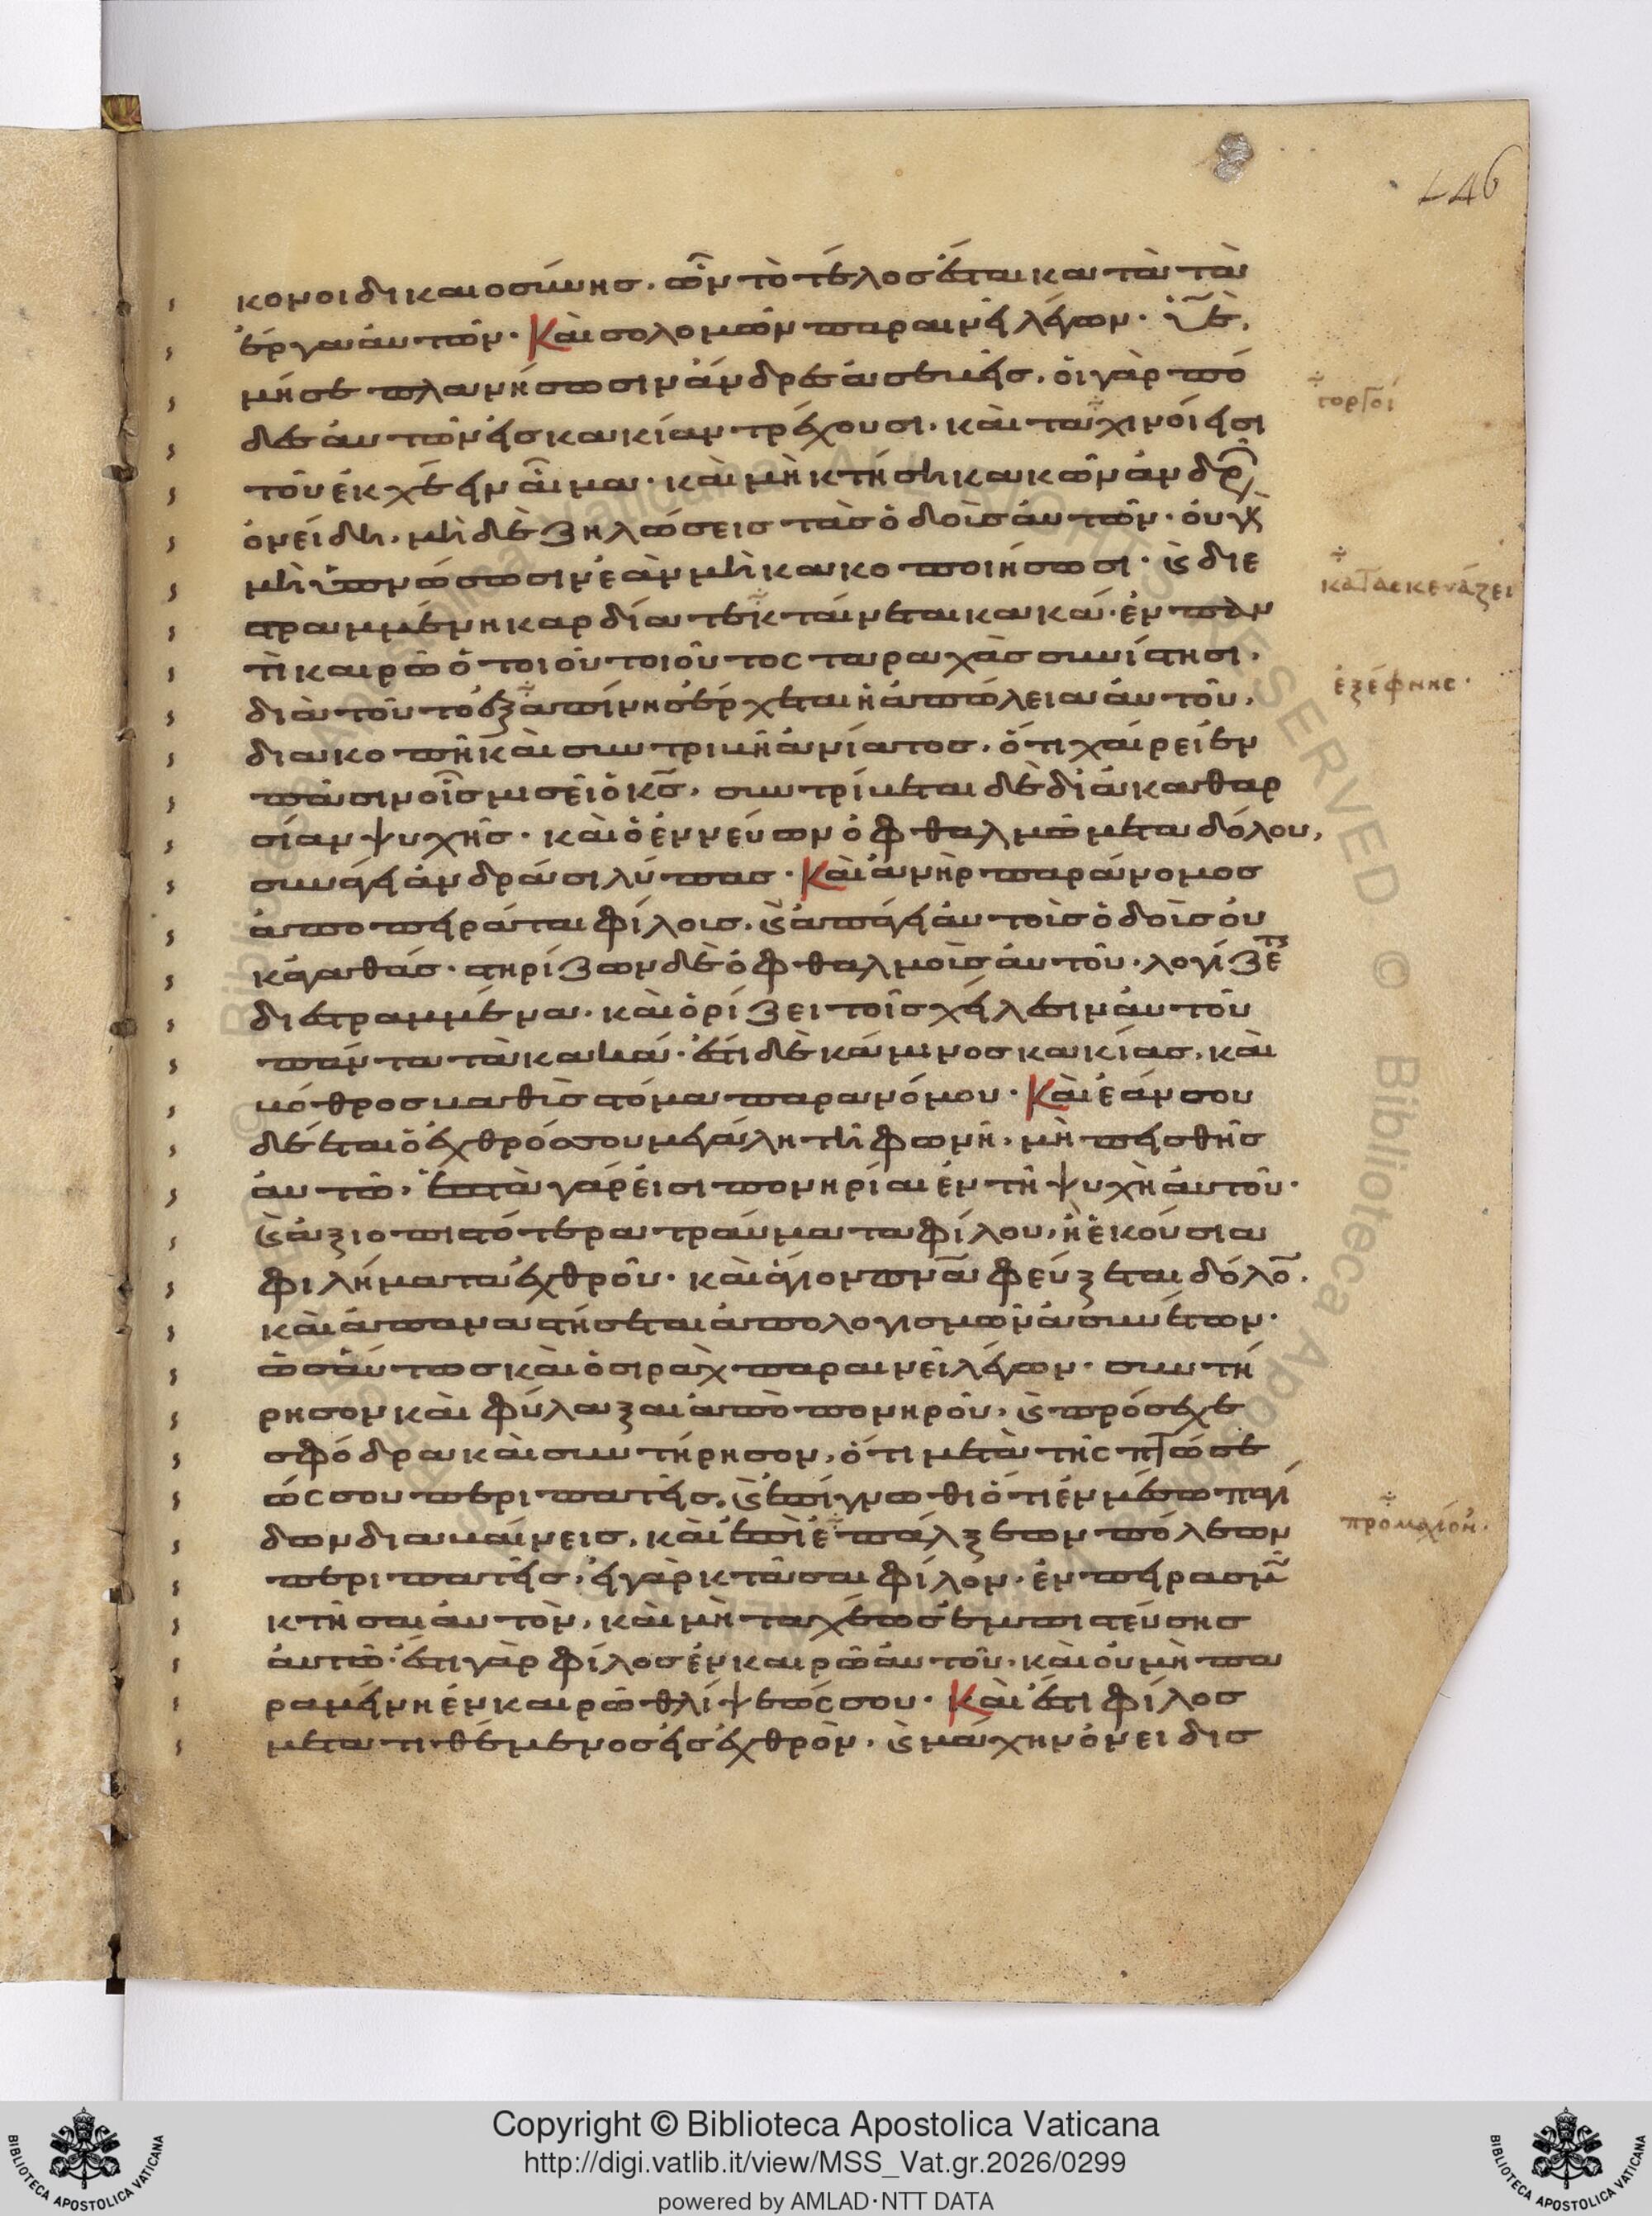 146
κονοι δικαιοσύνης. ὧν τὸ τέλος ἔσται κατὰ τὰ
ἔργα αὐτῶν. Καὶ σολομῶν παραινεῖ λέγων. υἱὲ,
μή σε πλανήσωσιν ἄνδρες ἀσεβεῖς. οἱ γὰρ πό
δες αὐτῶν εἰς κακίαν τρέχουσι. καὶ ταχινοὶ εἰσι
τοῦ ἐκχέειν αἷμα. καὶ μὴ κτήσῃ κακῶν ἀνδρῶν
ὀνείδη. μὴ δὲ ζηλώσεις τὰς ὁδοὺς αὐτῶν. οὐ γὰρ
μὴ ὑπνώσωσιν ἐὰν μὴ κακοποιήσωσι. καὶ διε
στραμμένη καρδία τεκταίνεται κακά. ἐν παν
τὶ καιρῶ ὁ τοιοῦτοιοῦτος ταραχὰς συνίστησι.
διὰ τοῦτο ἐξαπίνης ἔρχεται ἡ ἀπώλεια αὐτοῦ,
διακοπὴ καὶ συντριβὴ ἀνίατος. ὅτι χαίρει ἐν
πᾶσιν οἷς μισεῖ ὁ κς̄. συντρίβεται δὲ δι ἀκαθαρ
σίαν ψυχῆς. καὶ ὁ ἐννεύων ὀφθαλμῶ μετὰ δόλου,
συνάγει ἀνδράσι λύπας. Καὶ ἀνὴρ παράνομος
ἀποπειρᾶται φίλοις. καὶ ἀπάγει αὐτοὶς ὁδοὶς οὐ
κ ἀγαθάς. στηρίζων δὲ ὀφθαλμοὺς αὐτοῦ. λογίζεται
διεστραμμένα. καὶ ὁρίζει τοῖς χείλεσιν αὐτοῦ
πάντα τὰ κακά. ἔστι δὲ κάμινος κακίας. καὶ
βόθρος βαθὺς στόμα παρανόμου. Καὶ ἐάν σου
δέεται ὁ ἐχθρός σου μεγάλη τῆ φωνῆ, μὴ πεισθῆς
αὐτῶ. ἑπτὰ γάρ εἰσι πονηρίαι ἐν τῆ ψυχῆ αὐτοῦ.
καὶ ἀξιοπιστότερα τραύματα φίλου, ἢ ἑκούσια
φιλήματα ἐχθροῦ. καὶ ἅγιον πνᾶ φεύξεται δόλον.
καὶ ἀπαναστήσεται ἀπο λογισμῶν ἀσυνέτων.
ὡσαύτως καὶ ὁ σιρὰχ παραινεῖ λέγων. συντή
ρησον καὶ φύλαξαι ἀπὸ πονηροῦ. καὶ πρόσεχε
σφόδρα καὶ συντήρησον, ὅτι μετὰ τῆς πτώσε
ώς σου περιπατεῖς. καὶ ἐπίγνωθι ὅτι ἐν μέσω παγί
δων διαβαίνεις. καὶ ἐπὶ ἐπάλξεων πόλεων
περιπατεῖς. εἰ γὰρ κτᾶσαι φίλον. ἐν πειρασμῶ
κτῆσαι αὐτὸν, καὶ μὴ ταχέως ἐμπιστεύσης
αὐτῶ. ἔστι γὰρ φίλος ἐν καιρῶ αὐτοῦ. καὶ οὐ μὴ πα
ραμείνη ἐν καιρῶ θλίψεώς σου. Καὶ ἔστι φίλος
μετατιθέμενος εἰς ἐχθρὸν. καὶ μάχην ὀνειδισ
τοργοί
κατασκευάζει
ἐξέφνης.
προμαχιόν.
Copyright © Biblioteca Apostolica Vaticana
http://digi.vatlib.it/view/MSS_Vat.gr.2026/0299
powered by AMLAD·NTT DATA
BIBLIOTECA APOSTOLICA VATICANA
BIBLIOTECA APOSTOLICA VATICANA